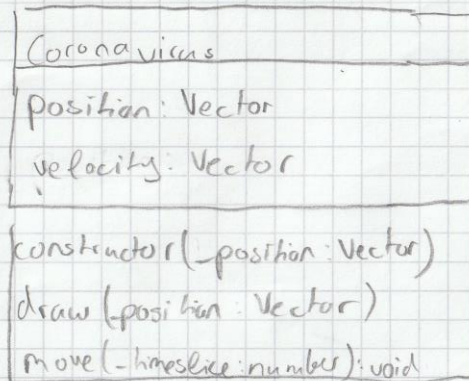 Coronavirus
position: Vector
velocity: Vector
constructor(_position: Vector)
draw(_position: Vector)
move(_timeslice: number): void